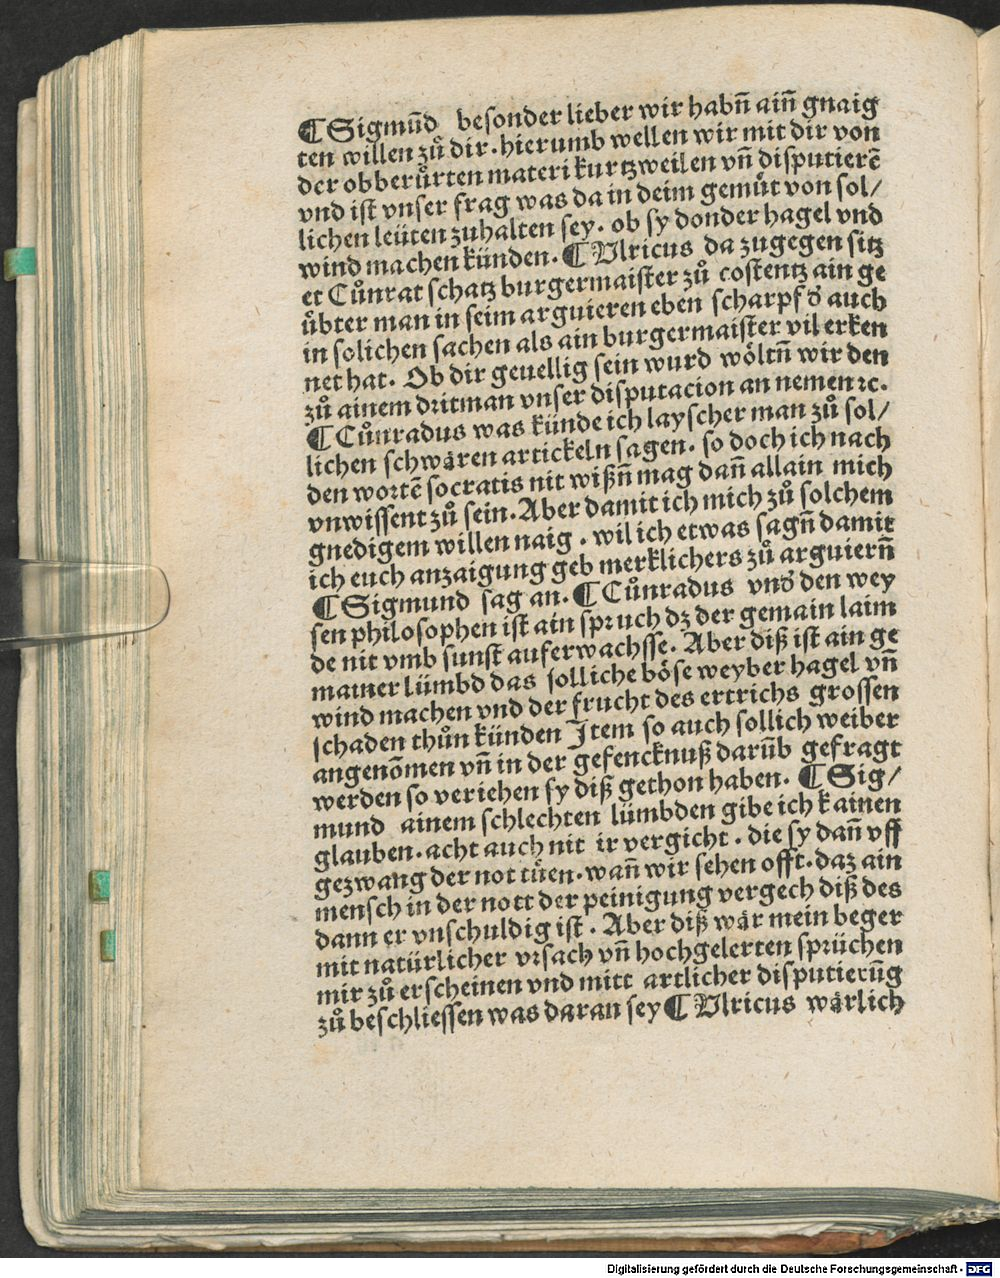 ¶ Sigmūd besonder lieber wir habn̄ ain̄ gnaig
ten willen zů dir. hierumb wellen wir mit dir von
der obberůrten materi kurtzweilen vn̄ disputierē
vnd ist vnser frag was da in deim gemůt von sol/
lichen leüten zuhalten sey. ob sy donder hagel vnd
wind machen künden. ¶ Vlricus da zugegen sitz
et Cůnrat schatz burgermaister zů costentz ain ge
ůbter man in seim arguieren eben scharpf d̄ auch
in solichen sachen als ain burgermaister vil erken
net hat. Ob dir geuellig sein wurd wöltn̄ wir den
zů ainem dritman vnser disputacion an nemen ꝛc.
¶ Cůnradus was künde ich layscher man zů sol/
lichen schwären artickeln sagen. so doch ich nach
den wortē socratis nit wißn̄ mag dan̄ allain mich
vnwissent zů sein. Aber damit ich mich zů solchem
gnedigem willen naig. wil ich etwas sagn̄ damit
ich euch anzaigung geb merklichers zů arguiern̄
¶ Sigmund sag an. ¶ Cůnradus vnd̄ den wey
sen philosophen ist ain spruch dz der gemain laim
de nit vmb sunst auferwachsse. Aber diß ist ain ge
mainer lümbd das solliche böse weyber hagel vn̄
wind machen vnd der frucht des ertrichs grossen
schaden thůn künden Item so auch sollich weiber
angenōmen vn̄ in der gefencknuß darūb gefragt
werden so veriehen sy diß gethon haben. ¶ Sig/
mund ainem schlechten lümbden gibe ich kainen
glauben. acht auch nit ir vergicht. die sy dan̄ vff
gezwang der not tüen. wan̄ wir sehen offt. daz ain
mensch in der nott der peinigung vergech diß des
dann er vnschuldig ist. Aber diß wär mein beger
mit natürlicher vrsach vn̄ hochgelerten sprüchen
mir zů erscheinen vnd mitt artlicher disputierūg
zů beschliessen was daran sey ¶ Vlricus wärlich
Digitalisierung gefördert durch die Deutsche Forschungsgemeinschaft - DFG